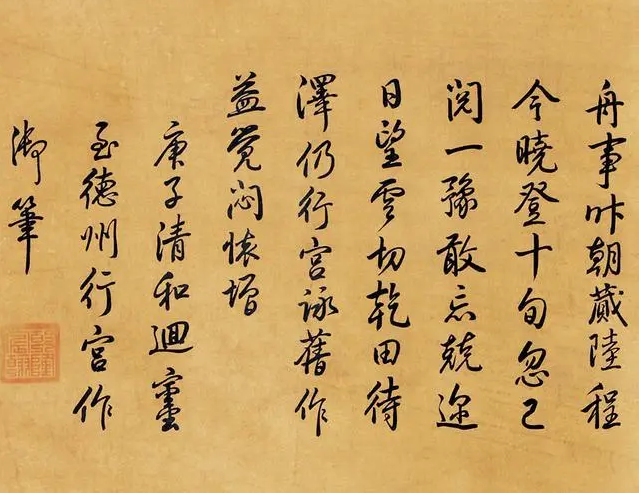 舟事昨朝蕆陸程
今曉登十旬忽已
閱一豫敢忘兢迩
日望雯切乾田待
澤仍行宫詠舊作
益覺悶懷增
庚子清和迴鑾
至德州行宫作
御筆